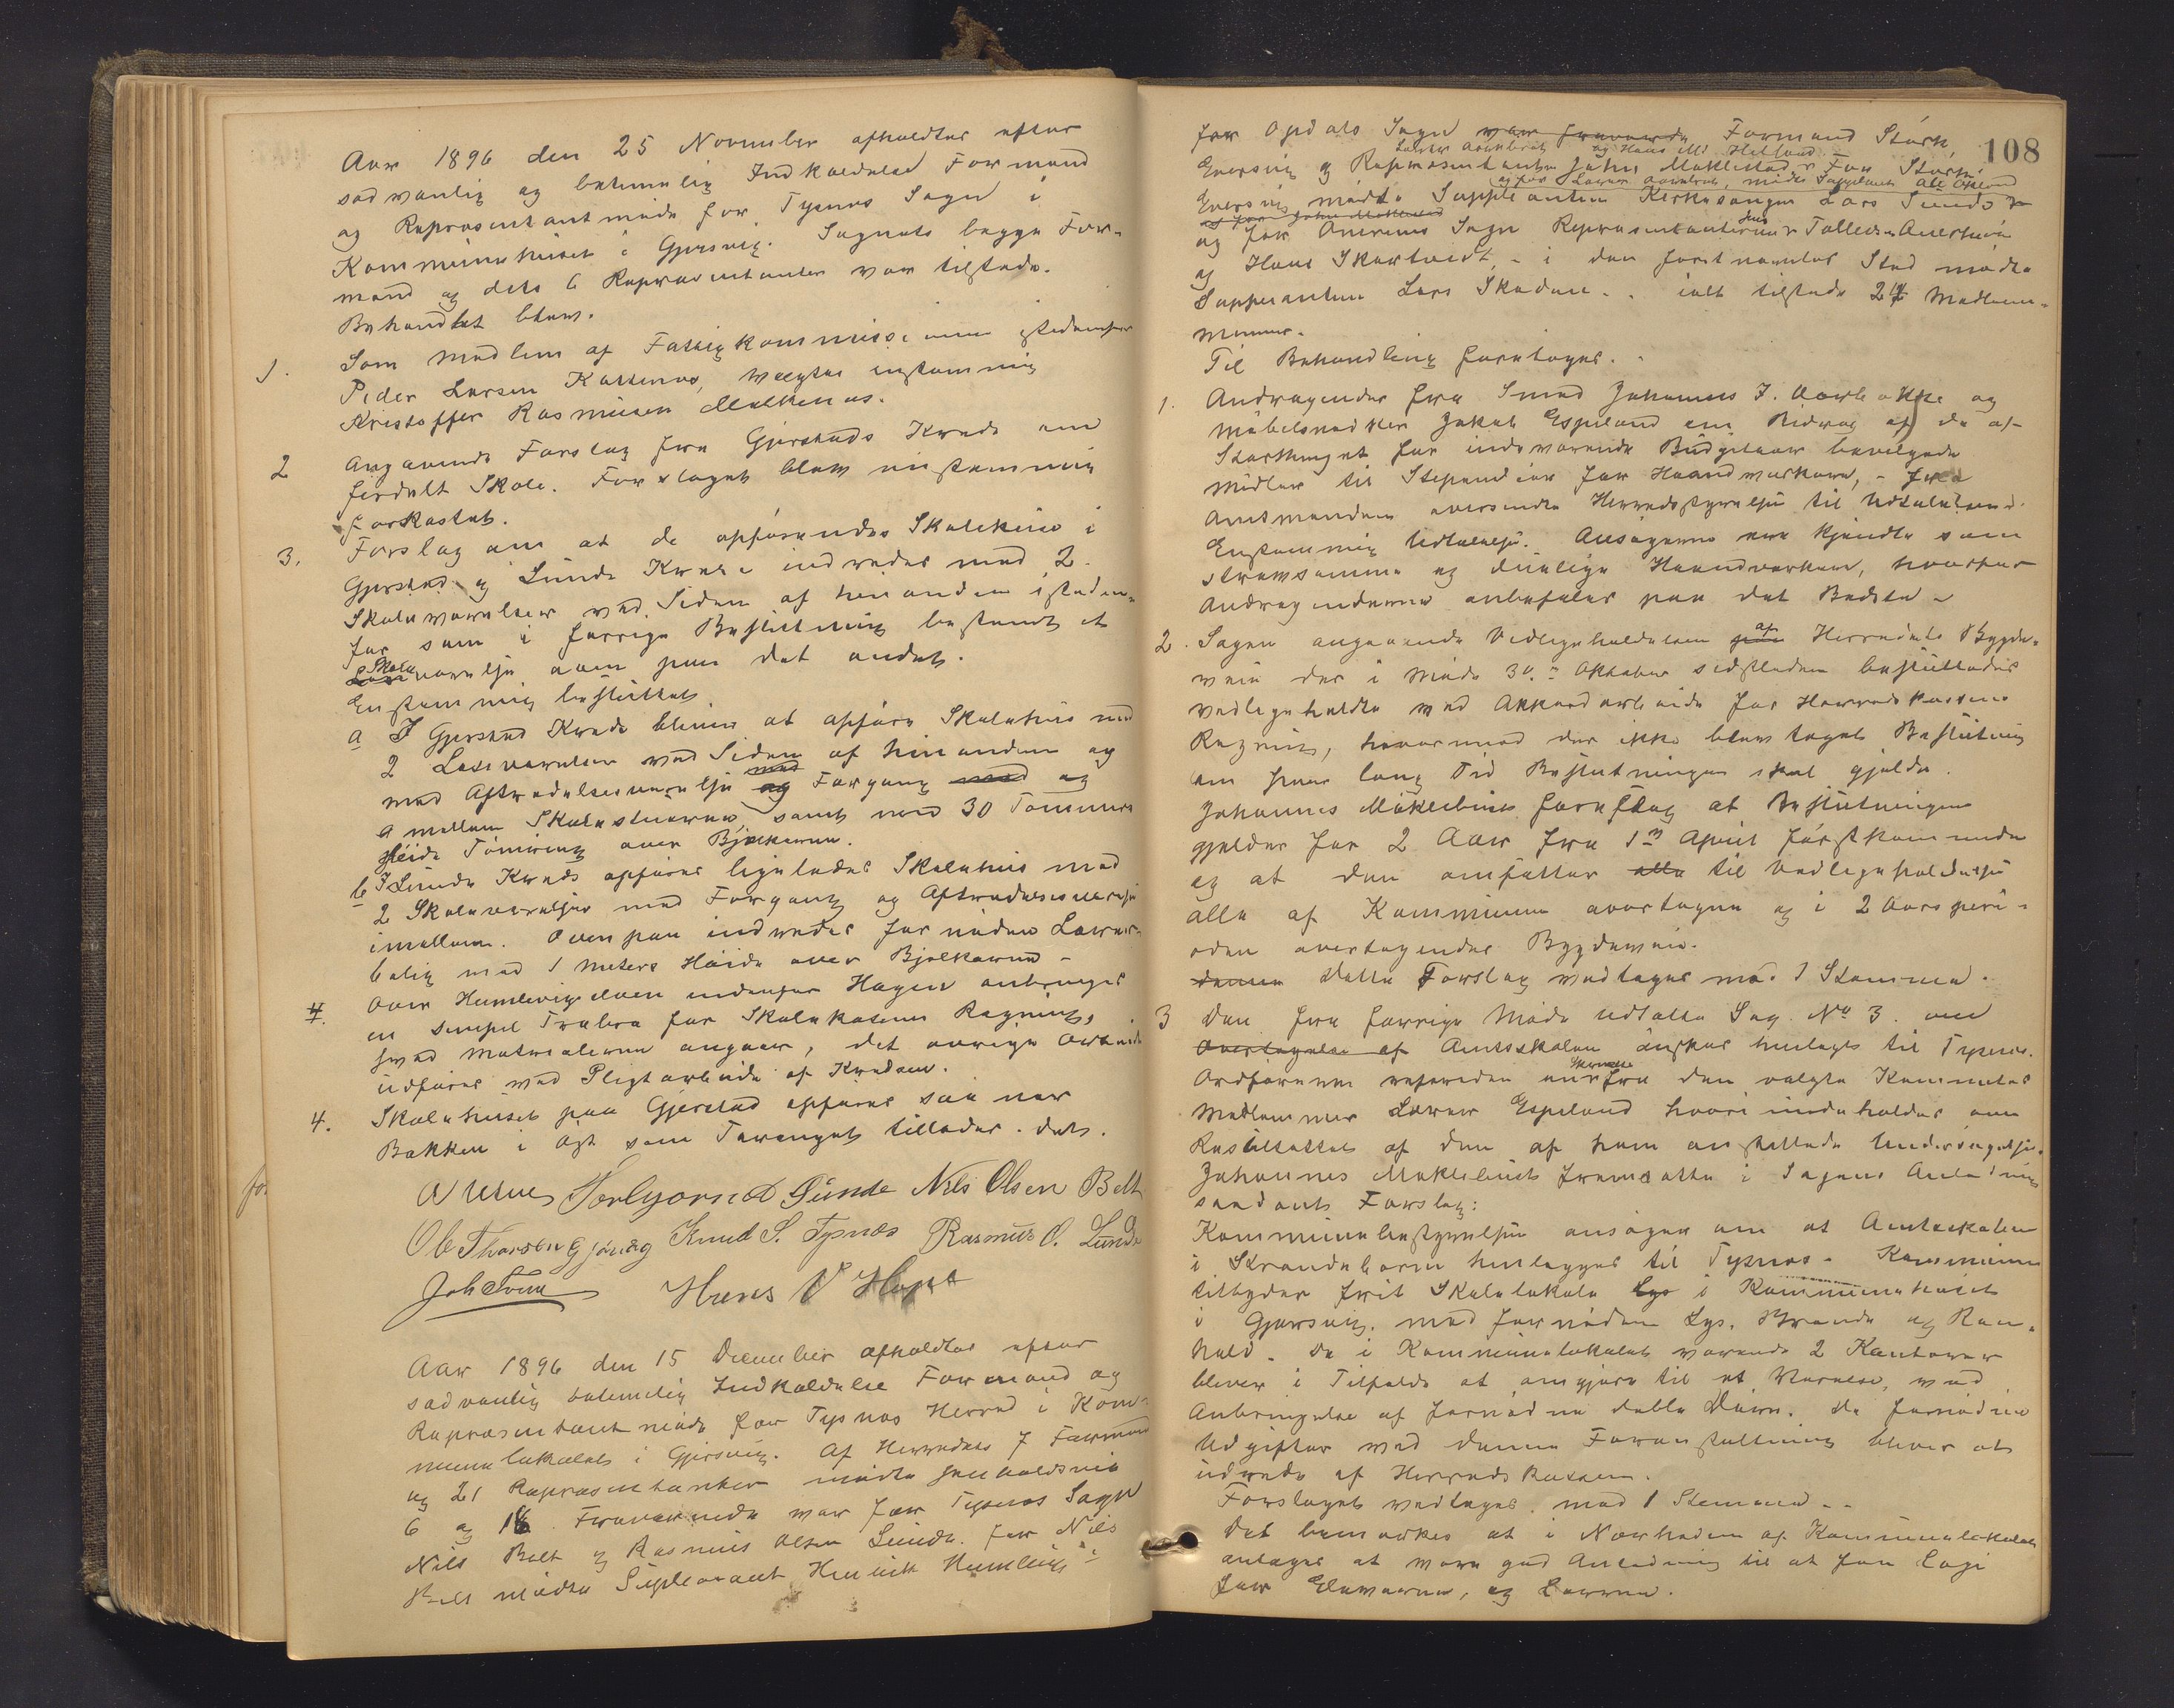 Aar 1896 den 25 November afholdtes efter
sedvanlig og betimelig Indkaldelse Formand
og Repræsentantmøde for Tysnes Sogn i
Kommunehuset i Gjersvig. Sognets begge For-
mænd og dets 6 Repræsentanter var tilstede.
Behandlet blev.
1. Som Medlem af Fattigkommissionen istedenfor
Peder Larsen Kattenes, valgtes enstemmig
Kristoffer Rasmusen Malkenes.
2 Angaaende Forslag fra Gjerstads Kreds om
firdelt Skole. Forslaget blev enstemmig
forkastet.
3. Forslag om at de opførendes Skolehuse i
Gjerstad og Lunde Kredse indredes med 2
Skoleværelser ved Siden af hinanden isteden-
for som i forrige Beslutning bestemt et
Skole værelse oven paa det andet.
Enstemmig besluttet
a I Gjerstad Kreds bliver at opføre Skolehus med
2 Læseværelser ved Siden af hinanden og
med Aftrædelsesværelse med og Forgang med og
a mellem Skolestuerne, samt med 30 Tommers
Høide Tømring over Bjælkerne.
b I Lunde Kreds opføres ligeledes Skolehus med
2 Skoleværelser med Forgang og Aftrædelsesværelse
imellem. Ovenpaa indredes fornøden Lærer-
bolig med 1 Meters Høide over Bjelkerne -
4. Over Humlevigselven indenfor Hagen anbringes
en simpel Træbro for Skolekassens Regning,
hvad Materialerne angaar, det øvrige Arbeide
udføres ved Pligtarbeide af Kredsen.
4. Skolehuset paa Gjerstad opføres saa nær
Bakken i Øst som Terrænget tillader det.
Torbjørn A Gunde Nils Olsen Belt
Ole Thorsen Gjøvåg Knud S. Tysnes Rasmus O. Lunde
Joh Tveit Hans V Hope
Aar 1896 den 15 December afholdtes efter
sedvanlig betimelig Indkaldelse Formand og
Repræsentantmøde for Tysnes Herred i Kom-
munelokalet i Gjersvig. Af Herredets 7 Formænd
og 21 Repræsentanter mødte henholdsvis
6 og 18 Fraværende var for Tysnes Sogn
Nils Belt og Rasmus Olsen Lunde. For Nils
Belt mødte Supleanant Henrik Humlevig
108
for Opdals Sogn var fraværende Formand Størk
Lærer Aarebrot og Hans Ms Helland
Eversvig og Repræsentanten John Mæklestad. For Størk
og for Lærer Aarebrot, mødte Suppleant Ole Opland
Eversvig mødte Supplianten Kirkesanger Lars Sunde
og for John Mæklestad
og for Onerems Sogn Repræsentanterne Jens Tollevsen Anersund
og Hans Skartveit, - i den førstnævntes Sted mødte
Supplianten Lars Skaden. - ialt tilstede 24 Medlem-
memer.
Til Behandling foretoges. -
1. Andragender fra Smed Johannes J. Aarbakke og
Møbelsnedker Jakob Espeland om Bidrag af de af
Storthinget for indeværende Budgetaar bevilgede
Midler til Stipendier for Haandverkere, - fra
Amtmanden oversendte Herredsstyrelse til Udtalelse.
Enstemmig Udtalelse. Ansøgerne ere kjendte som
strævsomme og duelige Haandverkere, hvorfor
Andragenderne anbefales paa det Bedste -
2. Sagen angaaende Vedligeholdelsen af Herredets Bygde-
veie der i Møde 30. Oktober sidstleden besluttedes
vedligeholdte ved Akkordarbeide for Herredskassens
Regning, hvormed der ikke blev taget Beslutning
om hvor lang Tid Beslutningen skal gjelde.
Johannes Mæklebust foreslog at Beslutningen
gjelder for 2 Aar fra 1ste April førstkommende
og at den omfatter alle til Vedligeholdelse
alle af Kommunen overtagne og i 2 Aars peri-
oden overtagendes Bygdeveie.
denne Dette Forslag vedtages mod 1 Stemme.
3 Den fra forrige Møde udsatte Sag No 3. om
Overtagelse af Amtsskolen ønskes henlagt til Tysnes.
Ordføreren refererede en Skrivelse fra den valgte Komites
Medlemmer Lærer Espeland hvori indeholdes om
Resultattet af den af ham anstillede Undersøgelse.
Johannes Mæklebust fremsatte i Sagens Anledning
saadant Forslag:
Kommunebestyrelsen ansøger om at Amtsskolen
i Strandebarm henlægges til Tysnes. Kommunen
tilbyder frit Skolelokale Lys i Kommunehuset
i Gjersvig, med fornøden Lys, Brænde og Ren-
hold. De i Kommunelokalet værende 2 Kontorer
bliver i Tilfælde at omgjøre til et Værelse, ved
Anbringelse af fornødne dobbe Døre. De fornødne
Udgifter ved denne Foranstaltning bliver at
udrede af Herredskassen.
Forslaget vedtages mod 1 Stemme. -
Det bemærkes at i Nærheden af Kommunelokalet
antages at være god Anledning til at faa Logi
for Eleverne, og Lærere.